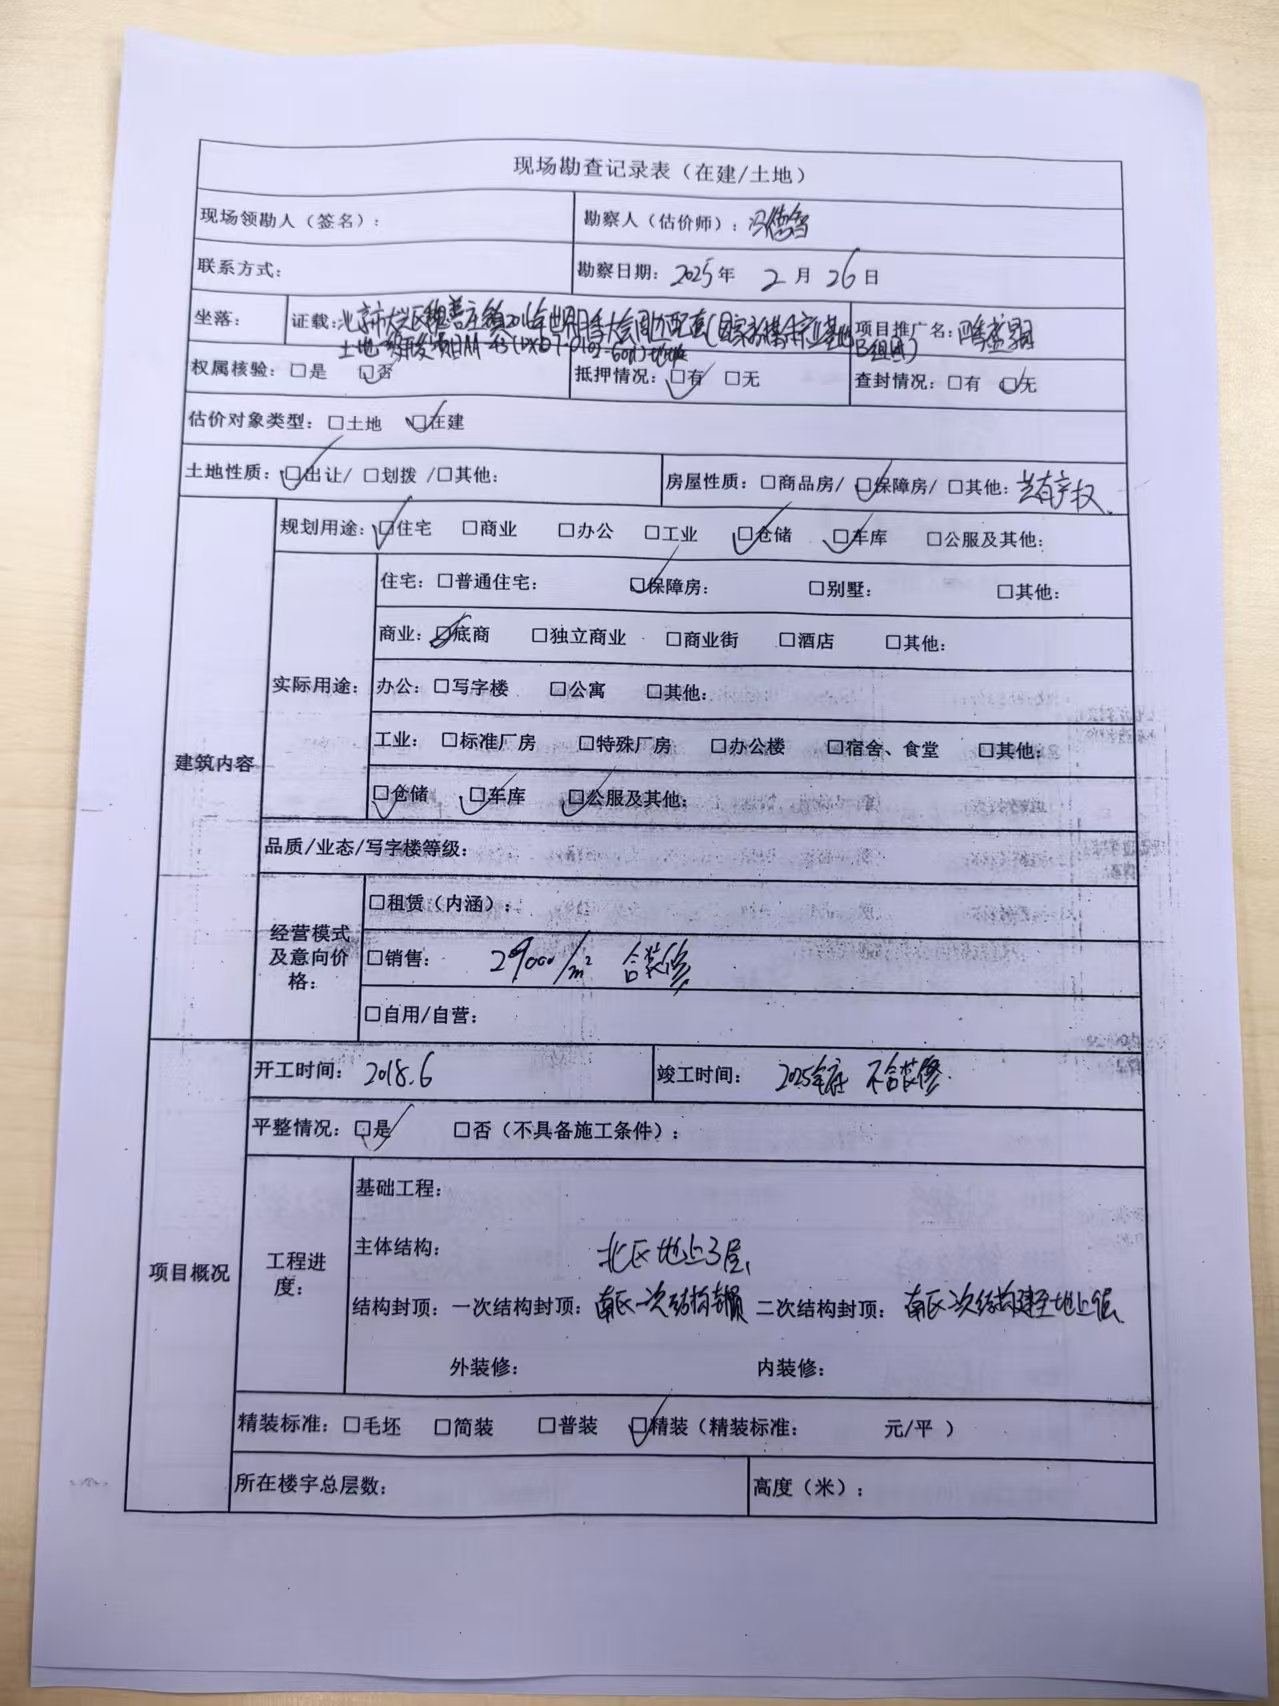 现场勘查记录表（在建/土地）
现场领勘人（签名）： 勘察人（估价师）：冯德
联系方式： 勘察日期：2025年 2月 26日
坐落： 证载：北京市大兴区魏善庄镇2016年世界月季大会周边配套（国家新媒体产业基地 项目推广名：
土地一级开发项目 B组团）
权属核验：□是 □否 抵押情况：□有 □无 查封情况：□有 □无
估价对象类型：□土地 □在建
土地性质：□出让/ □划拨 /□其他： 房屋性质：□商品房/ □保障房/ □其他：共有产权、
建筑内容
规划用途：□住宅 □商业 □办公 □工业 □仓储 □车库 □公服及其他：
实际用途：
住宅：□普通住宅： □保障房： □别墅： □其他：
商业：□底商 □独立商业 □商业街 □酒店 □其他：
办公：□写字楼 □公寓 □其他：
工业：□标准厂房 □特殊厂房 □办公楼 □宿舍、食堂 □其他：
□仓储 □车库 □公服及其他：
品质/业态/写字楼等级：
经营模式及意向价格：
□租赁（内涵）：
□销售： 29000/m² 含装修
□自用/自营：
项目概况
开工时间：2018.6 竣工时间：2025年底 不含装修.
平整情况：□是 □否（不具备施工条件）：
工程进度：
基础工程：
主体结构： 北区地上3层、
结构封顶：一次结构封顶：南区一次结构封顶 二次结构封顶：南区二次结构建至地上
外装修： 内装修：
精装标准：□毛坯 □简装 □普装 □精装（精装标准： 元/平 ）
所在楼宇总层数： 高度（米）：